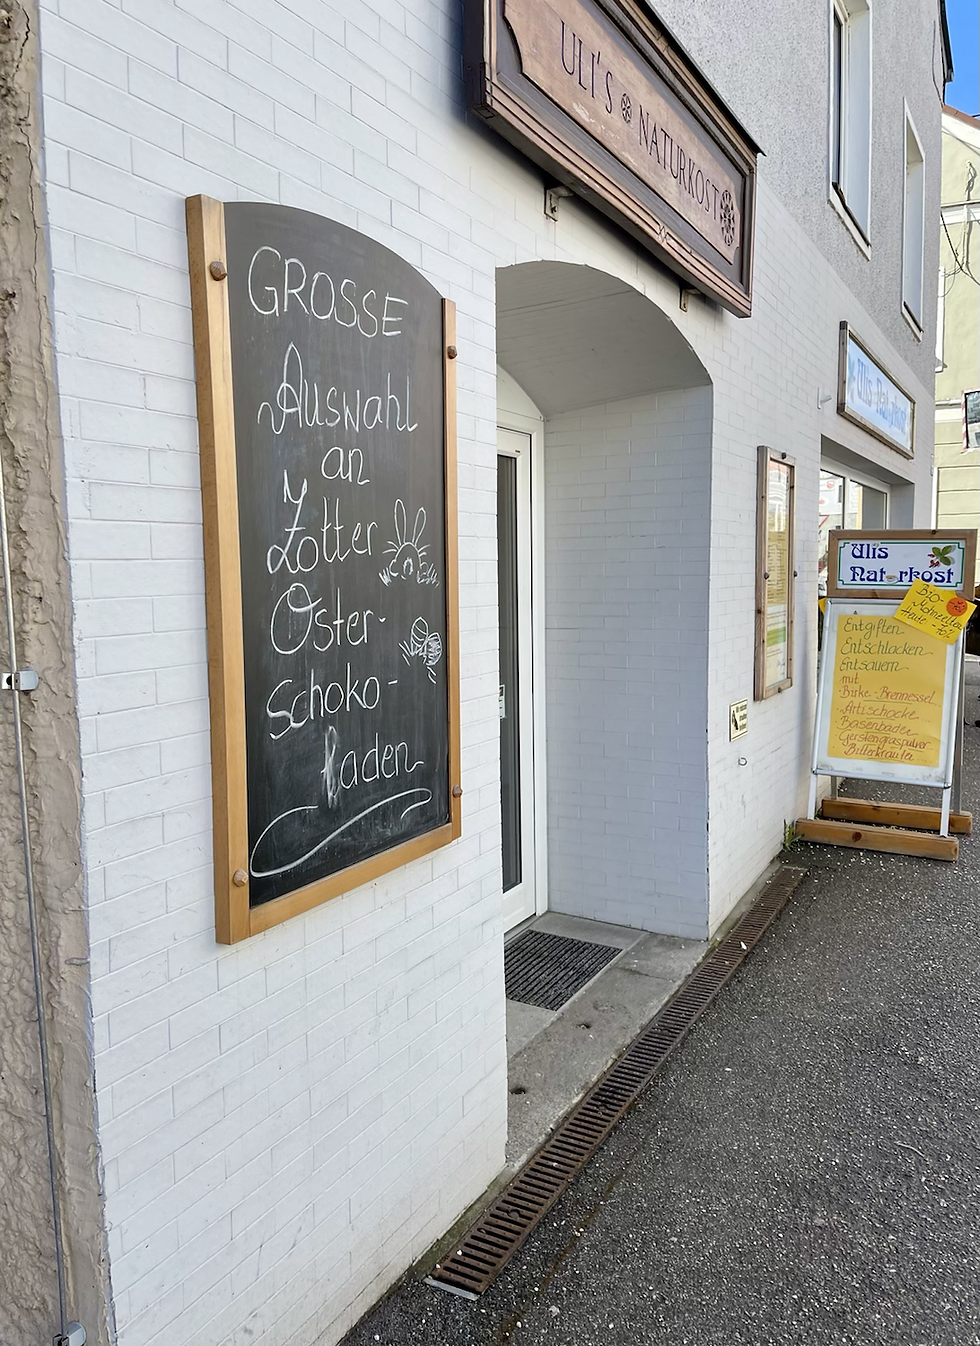 ULI'S NATURKOST
GROSSE
Auswahl
an
Zotter
Oster-
Schoko-
laden
Ulis Naturkost
Ulis
Nat rkost
Bio-
Heute -70%
Entgiften
Entschlacken
Entsäuern
mit
Birke-Brennessel
Artischocke
Basenbäder
Gerstengraspulver
Bitterkräuter